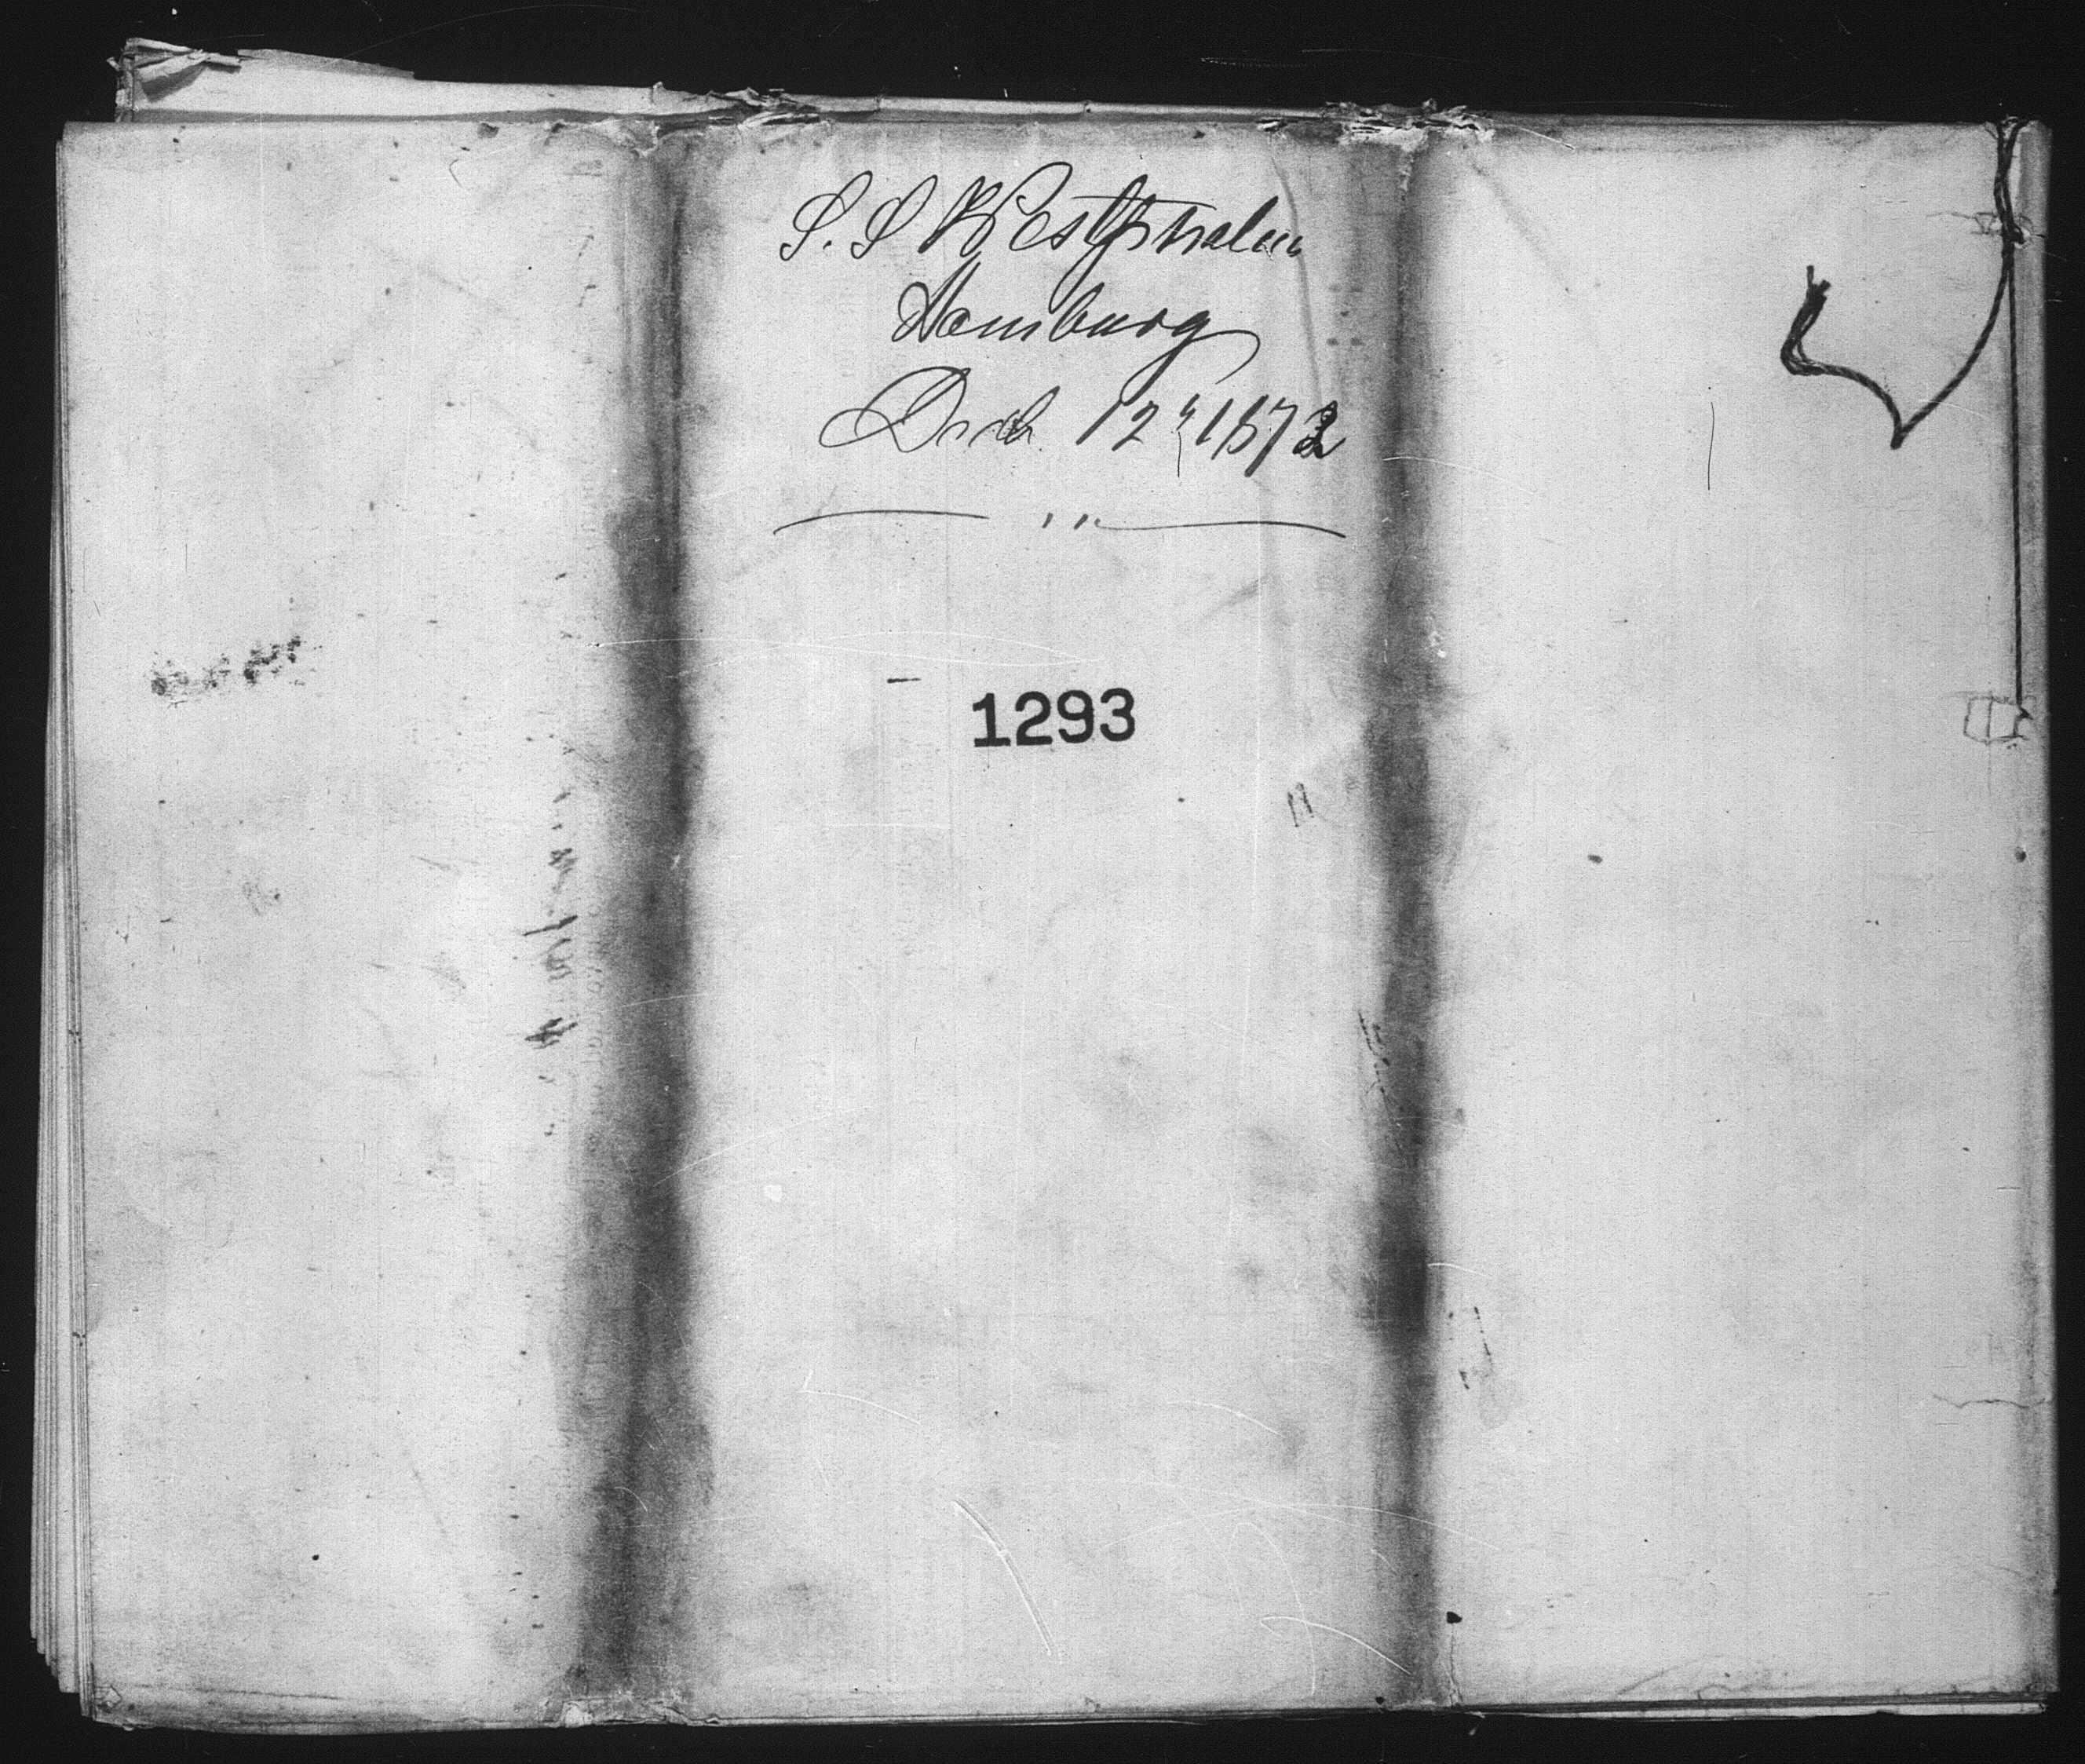 S. S Westphalia
Hamburg
Decb. 12" 1872
1293